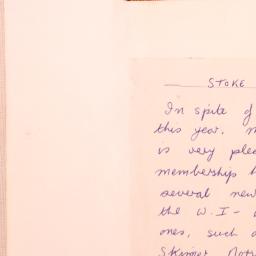 STOKE
In spite of
this year,
is very
membership
several new
the W.I -
ones, such
Skinner